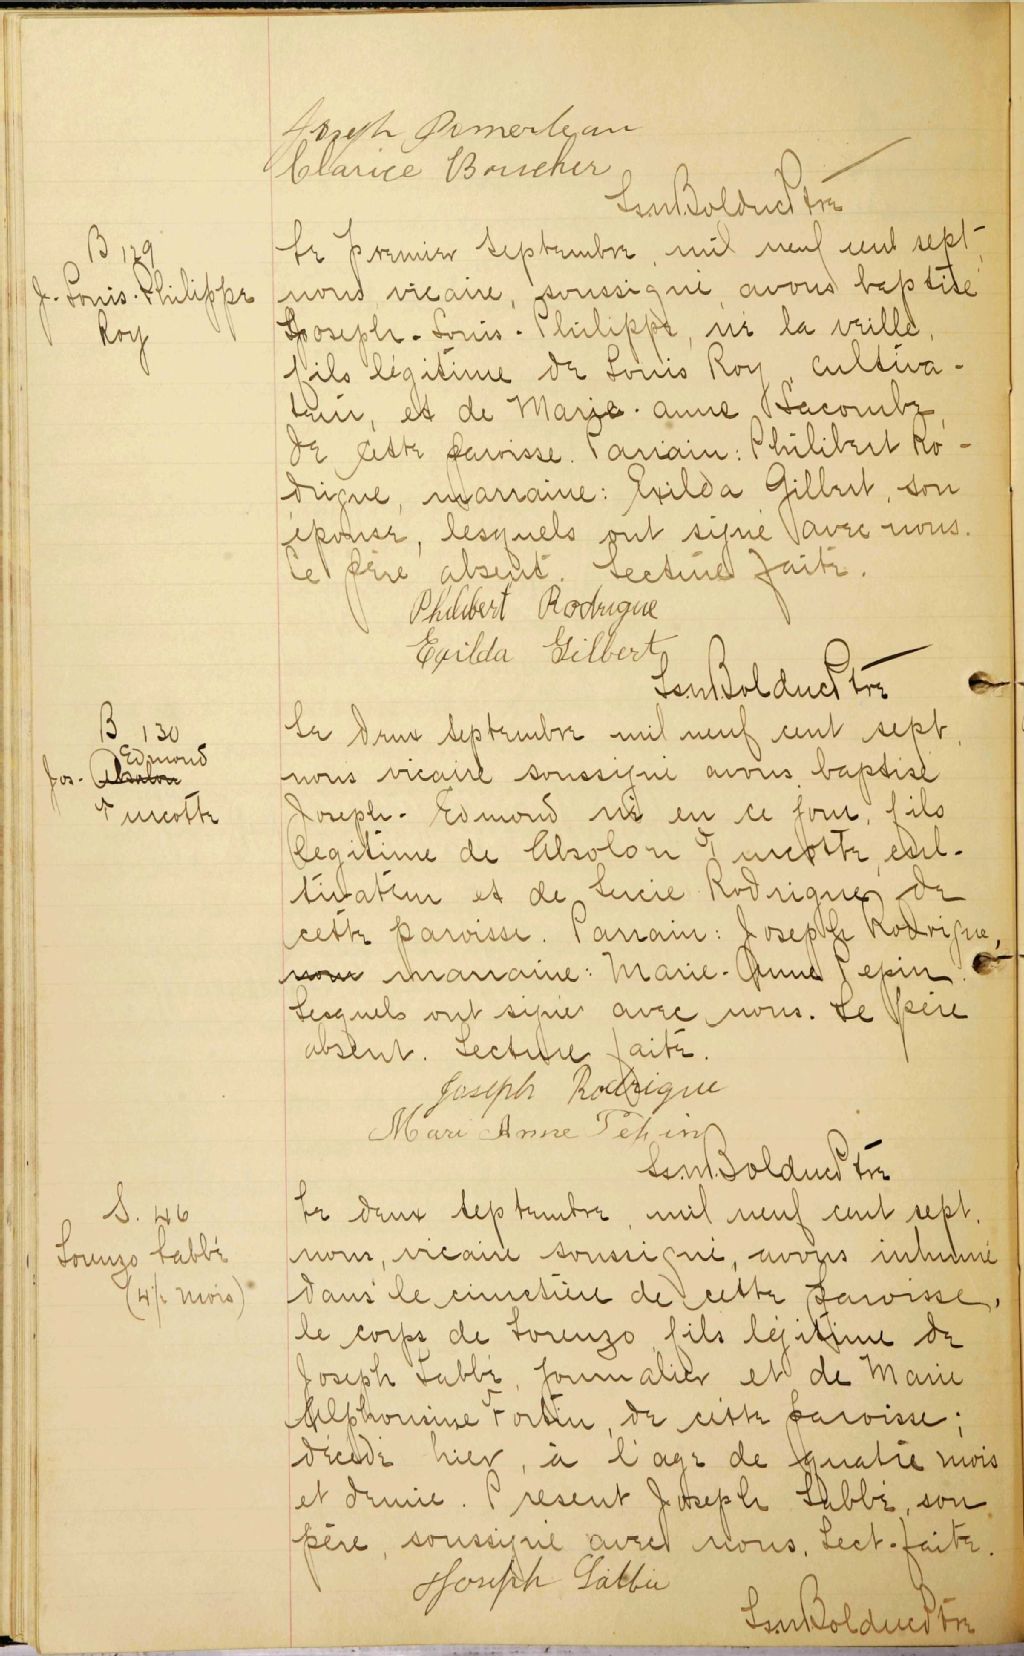 Joseph Pomerleau
Clarice Boucher
Bolduc Ptre
B 129
J. Louis. Philippe
Roy
Le premier septembre, mil neuf cent sept,
nous, vicaire, soussigné, avons baptisé
Joseph-Louis-Philippe, né la veille,
fils légitime de Louis Roy, cultiva-
teur, et de Marie-anne Lacombe,
de cette paroisse. Parrain: Philibert Ro-
drigue, marraine: Exilda Gilbert, son
épouse, lesquels ont signé avec nous.
Le père absent. Lecture faite.
Philibert Rodrigue
Exilda Gilbert
Bolduc Ptre
B 130
Edmond
Jos. Absolon
Turcotte
Le deux septembre mil neuf cent sept,
nous vicaire soussigné avons baptisé
Joseph-Edmond né en ce jour, fils
légitime de Absolon Turcotte, cul-
tivateur et de Lucie Rodrigue, de
cette paroisse. Parrain: Joseph Rodrigue,
marraine: Marie-Anne Pepin.
Lesquels ont signé avec nous. Le père
absent. Lecture faite.
Joseph Rodrigue
Mari Anne Pépin
Bolduc Ptre
S. 46
Lorenzo Labbé
(4½ mois)
Le deux septembre, mil neuf cent sept,
nous, vicaire soussigné, avons inhumé
dans le cimetière de cette paroisse,
le corps de Lorenzo, fils légitime de
Joseph Labbé, journalier et de Marie
Alphonsine Fortin, de cette paroisse;
décédé hier, à l'age de quatre mois
et demie. Présent Joseph Labbé, son
père, soussigné avec nous. Lect. faite.
Joseph Labbé
Bolduc Ptre